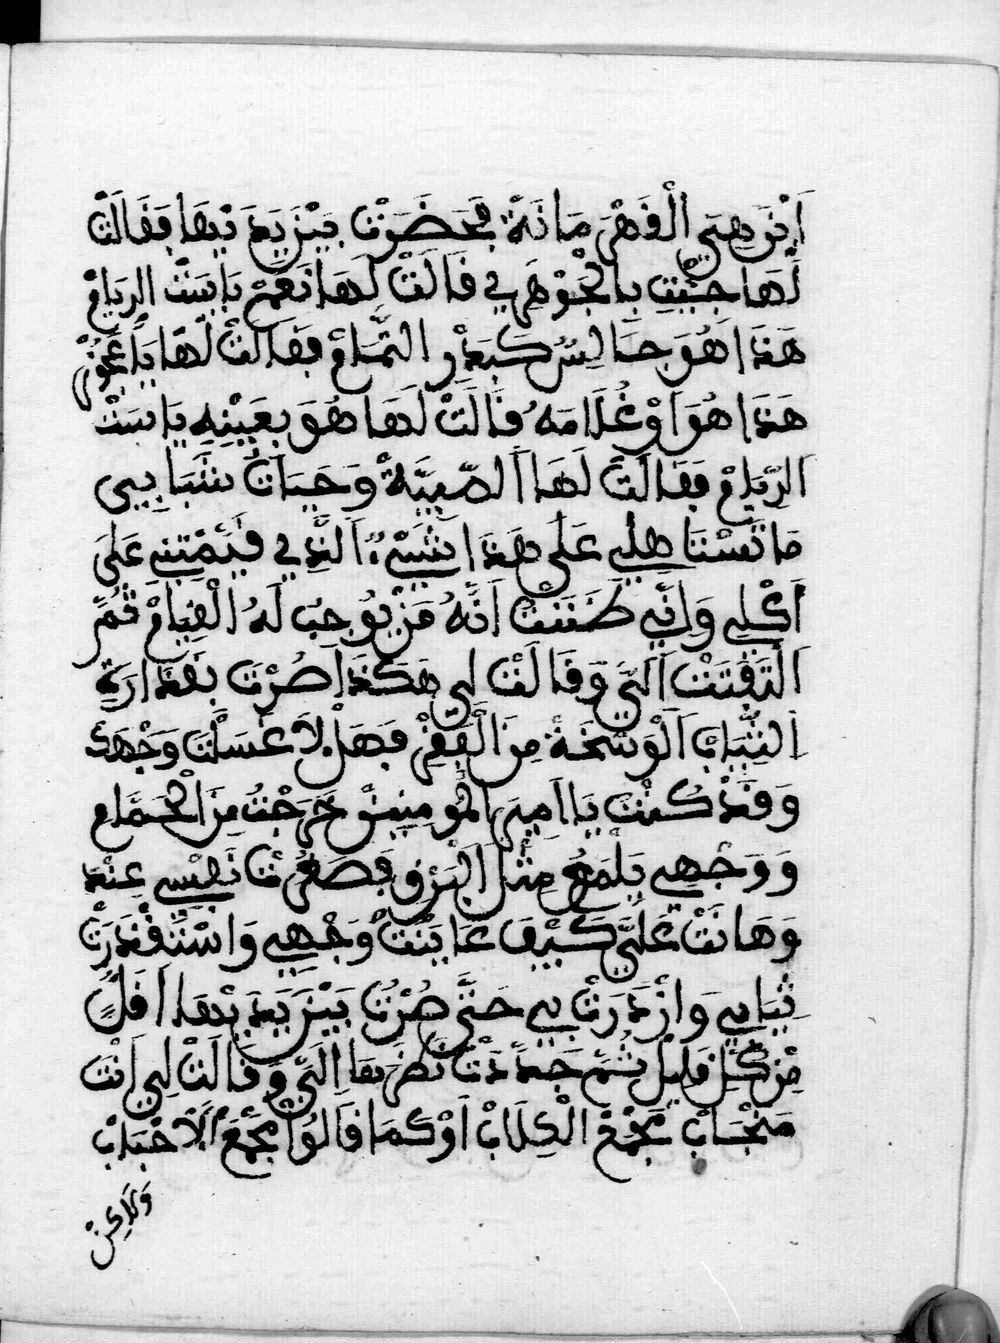 اَيْنَ هِيَ الْقَهْرَمَانَةُ فَحَضَرَتْ بَيْنَ يَدَيْهَا فَقَالَتْ
لَهَا جِئْتِ بِالْجَوْهَرِي قَالَتْ لَهَا نَعَمْ يَا سَتَّ الرِيَامْ
هَذَا هُوَ جَالِسْ كَبَدْرِ التَّمَامْ فَقَالَتْ لَهَا يَا عَجُوزْ
هَذَا هُوَ اَوْ غُلَامَهُ قَالَتْ لَهَا هُوَ بِعَيْنِهِ يَا سَتْ
الرِّيَامْ فَقَالَتْ لَهَا الصَّبِيَّةْ وَحَيَاتْ شَبَابِي
مَا تَسْتَاهِلِي عَلَى هَذَا شَيْءٌ الَّذِي قَيَّمْتِنِي عَلَى
اَكْلِي وَاِنِّي ظَنَنْتُ اَنَّهُ مَنْ يُوجَبْ لَهُ الْقِيَامْ ثُمَّ
الْتَفَتَتْ اِلَيَّ وَقَالَتْ لِي هَكَذَا صُرْتَ بِهَذَارِهِ
الثِّيَابْ الْوَسْخَةْ مِنَ الْفَقْرْ فَهَلَا غَسَلْتَ وَجْهَكْ
وَقَدْ كُنْتْ يَا اَمِيرَ الْمُومِنِينْ خَرَجْتُ مِنَ الْحَمَّامِ
وَوَجْهِي يَلْمَعُ مِثْلَ الْبَرْقِ فَصَغُرَتْ نَفْسِي عِنْدِ
وَهَانَتْ عَلَيَّ كَيْفَ عَايَنَتْ وَجْهِي وَاسْتَقْذَرَتْ
ثِيَابِي وَازْدَرَتْ بِي حَتَّى صُرْتُ بَيْنَ يَدَيْهَا اَقَلَّ
مِنْ كُلِّ قَلِيلْ ثُمَّ جَدَّدَتْ نَظَرَهَا اِلَيَّ وَقَالَتْ لِي اَنْتَ
مِنْجَابْ مَجْمَعْ الْكِلَابْ اَوْ كَمَا قَالُوا مَجْمَعْ الْاَحْبَابْ
وَلَاكِنْ